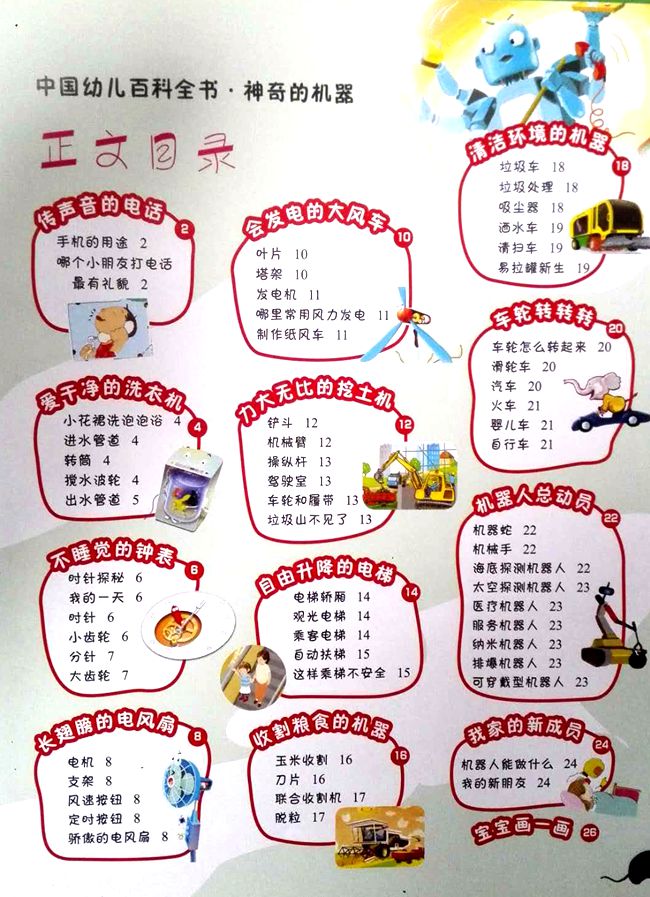 中国幼儿百科全书·神奇的机器
正文目录
传声音的电话 2
手机的用途 2
哪个小朋友打电话
最有礼貌 2
爱干净的洗衣机 4
小花裙洗泡泡浴 4
进水管道 4
转筒 4
搅水波轮 4
出水管道 5
不睡觉的钟表 6
时针探秘 6
我的一天 6
时针 6
小齿轮 6
分针 7
大齿轮 7
长翅膀的电风扇 8
电机 8
支架 8
风速按钮 8
定时按钮 8
骄傲的电风扇 8
会发电的大风车 10
叶片 10
塔架 10
发电机 11
哪里常用风力发电 11
制作纸风车 11
力大无比的挖土机 12
铲斗 12
机械臂 12
操纵杆 13
驾驶室 13
车轮和履带 13
垃圾山不见了 13
自由升降的电梯 14
电梯轿厢 14
观光电梯 14
乘客电梯 14
自动扶梯 15
这样乘梯不安全 15
收割粮食的机器 16
玉米收割 16
刀片 16
联合收割机 17
脱粒 17
清洁环境的机器 18
垃圾车 18
垃圾处理 18
吸尘器 18
洒水车 19
清扫车 19
易拉罐新生 19
车轮转转转 20
车轮怎么转起来 20
滑轮车 20
汽车 20
火车 21
婴儿车 21
自行车 21
机器人总动员 22
机器蛇 22
机械手 22
海底探测机器人 22
太空探测机器人 23
医疗机器人 23
服务机器人 23
纳米机器人 23
排爆机器人 23
可穿戴型机器人 23
我家的新成员 24
机器人能做什么 24
我的新朋友 24
宝宝画一画 26